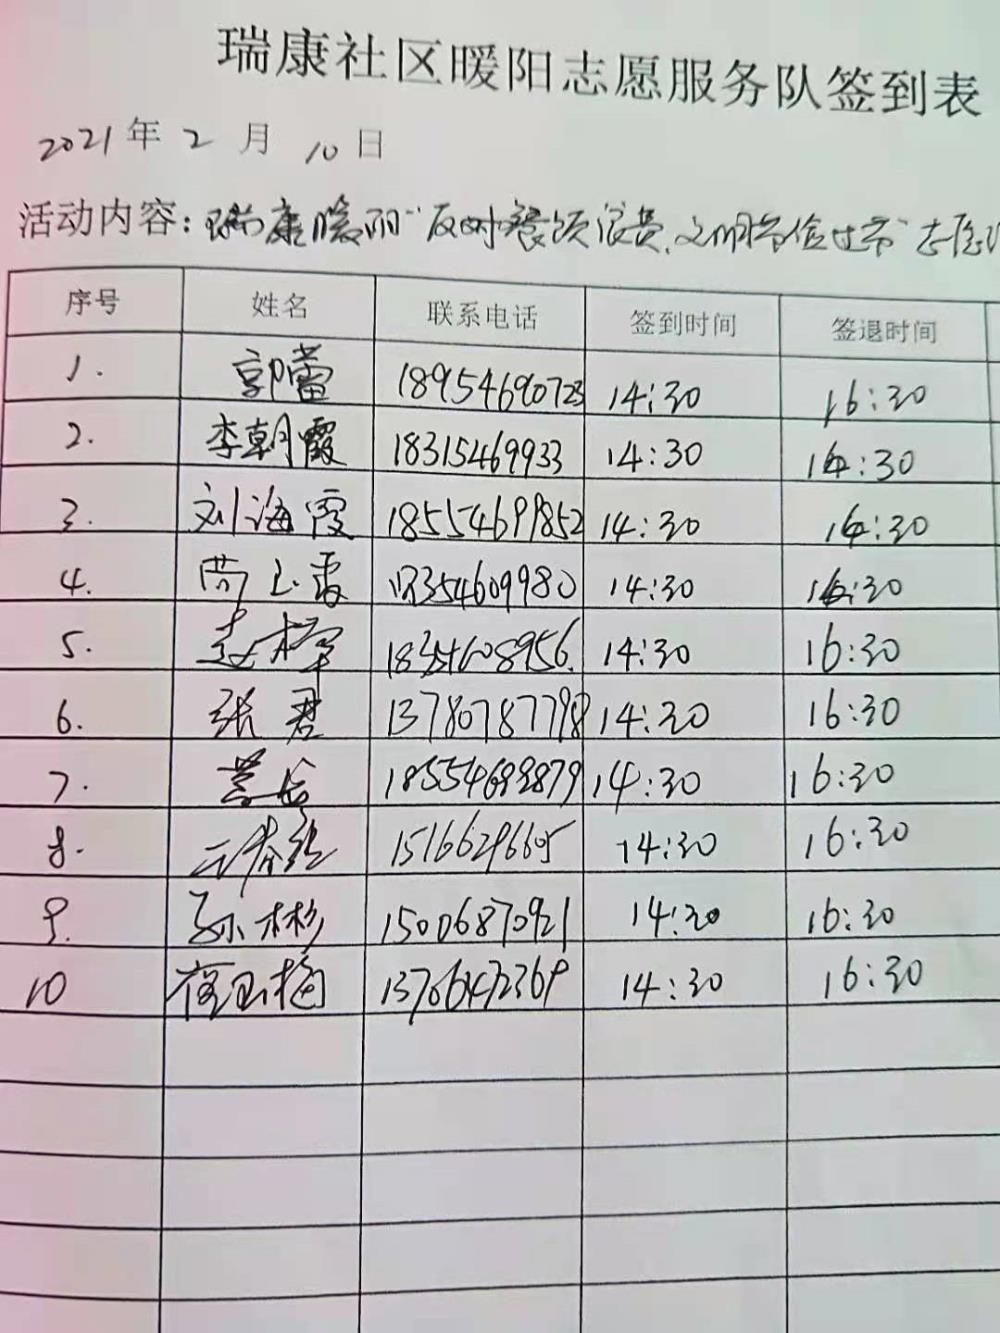 瑞康社区暖阳志愿服务队签到表
2021年 2 月 10日
活动内容：瑞康暖阳"反对餐饮浪费,文明节俭过节"志愿
序号 姓名 联系电话 签到时间 签退时间
1. 郭蕾 18954690723 14:30 16:30
2. 李朝霞 18315469933 14:30 16:30
3. 刘海霞 18554699852 14:30 16:30
4. 14:30 16:30
5. 14:30 16:30
6. 张君 13780787798 14:30 16:30
7. 14:30 16:30
8. 15166296605 14:30 16:30
9. 孙林彬 15006870921 14:30 16:30
10 14:30 16:30